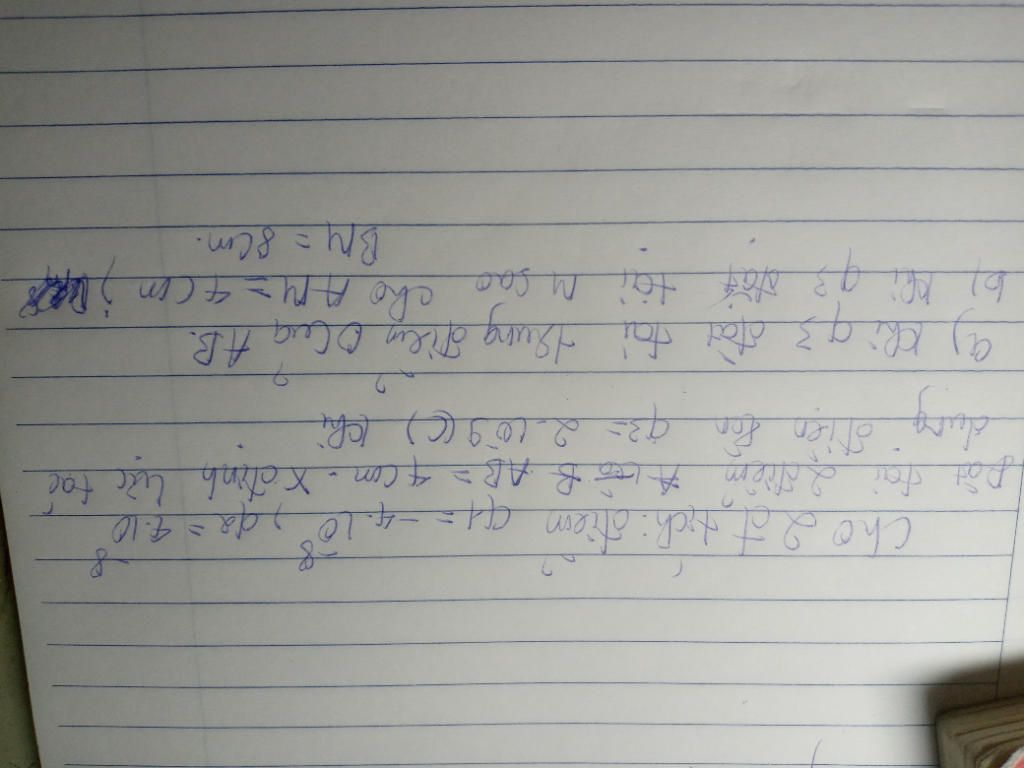 Cho 2 đ tích điểm q1 = -4.10⁻⁸, q2 = 4.10⁻⁸
Đặt tại 2 điểm A B AB = 4cm. Xđịnh lực tác
dụng điện lên q3 = 2.10⁻9 (C) khi
a) khi q3 đặt tại trung điểm O của AB.
b) khi q3 đặt tại M sao cho AM = 4cm,
BM = 8cm.